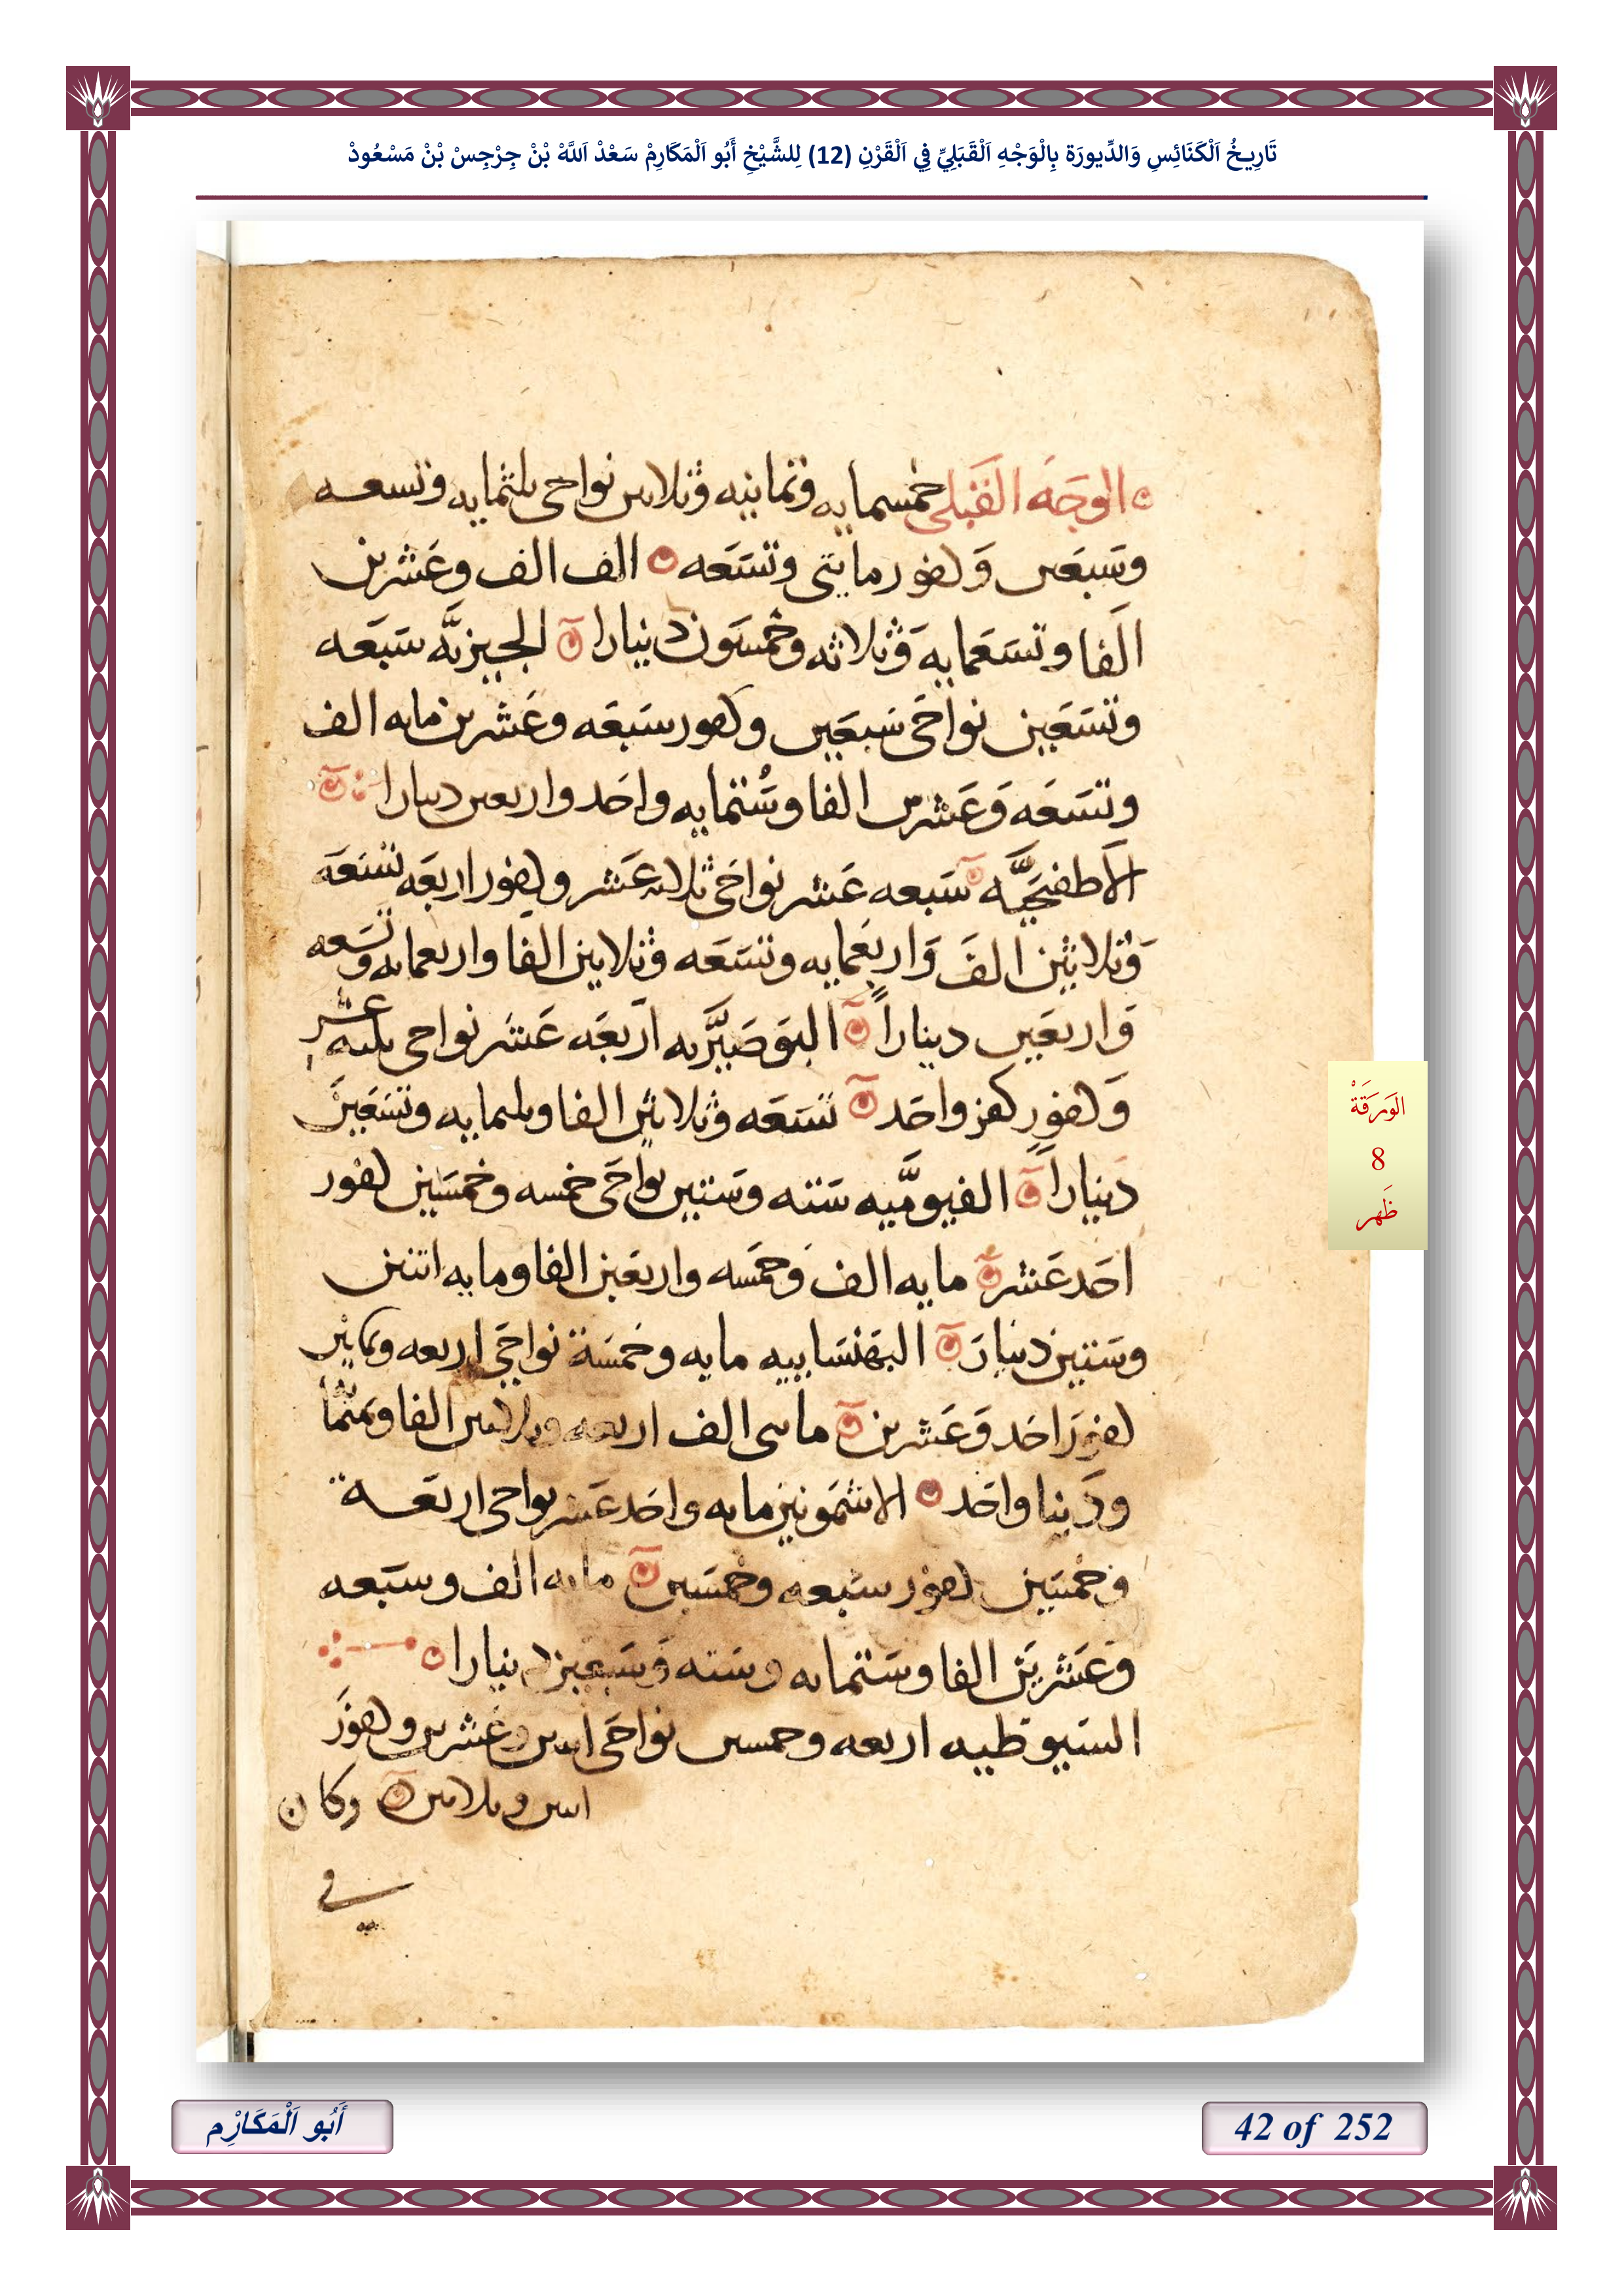 تَارِيخُ اَلْكَنَائِسِ وَالدِّيورَة بِالْوَجْهِ اَلْقَبَلِيِّ فِي اَلْقَرْنِ (12) لِلشَّيْخِ أَبُو اَلْمَكَارِمْ سَعْدْ اَللَّهْ بْنْ جِرْجِسْ بْنْ مَسْعُودْ
الوجه القبلى خمسمايه وثمانيه وثلاثين نواحى ثلثمايه وتسعه
وسبعين وكفور مايتى وتسعه الف الف وعشرين
الفا وتسعمايه وثلاثه وخمسون دينارا الجيزيه سبعه
وتسعين نواحى سبعين وكفور سبعه وعشرين مايه الف
وتسعه وعشرين الفا وستمايه واحد واربعين دينارا
الاطفيحيه سبعه عشر نواحى ثلاثه عشر وكفور اربعه تسعه
وثلاثين الف واربعمايه وتسعه وثلاثين الفا واربعمايه وتسعه
واربعين دينارا البوصيريه اربعه عشر نواحى ثلثه عشر
وكفور كفر واحد تسعه وثلاثين الفا وثلثمايه وتسعين
دينارا الفيوميه سته وستين نواحى خمسه وخمسين كفور
احد عشر مايه الف وخمسه واربعين الفا ومايه اتنين
وستين دينار البهنسايه مايه وخمسة نواحى اربعه وثمانين
كفور احد وعشرين مايتى الف اربعه وثلاثين الفا وثمنما
ودينا واحد الاشمونين مايه واحد عشر نواحى اربعة
وخمسين كفور سبعه وخمسين مايه الف وسبعه
وعشرين الفا وستمايه وسته وسبعين دينارا
السيوطيه اربعه وخمسين نواحى اثنين وعشرين وكفور
اثنين وثلاثين وكان
فى
الوَرَقَةْ
8
ظَهر
أَبُو اَلْمَكَارِْم
42 of 252